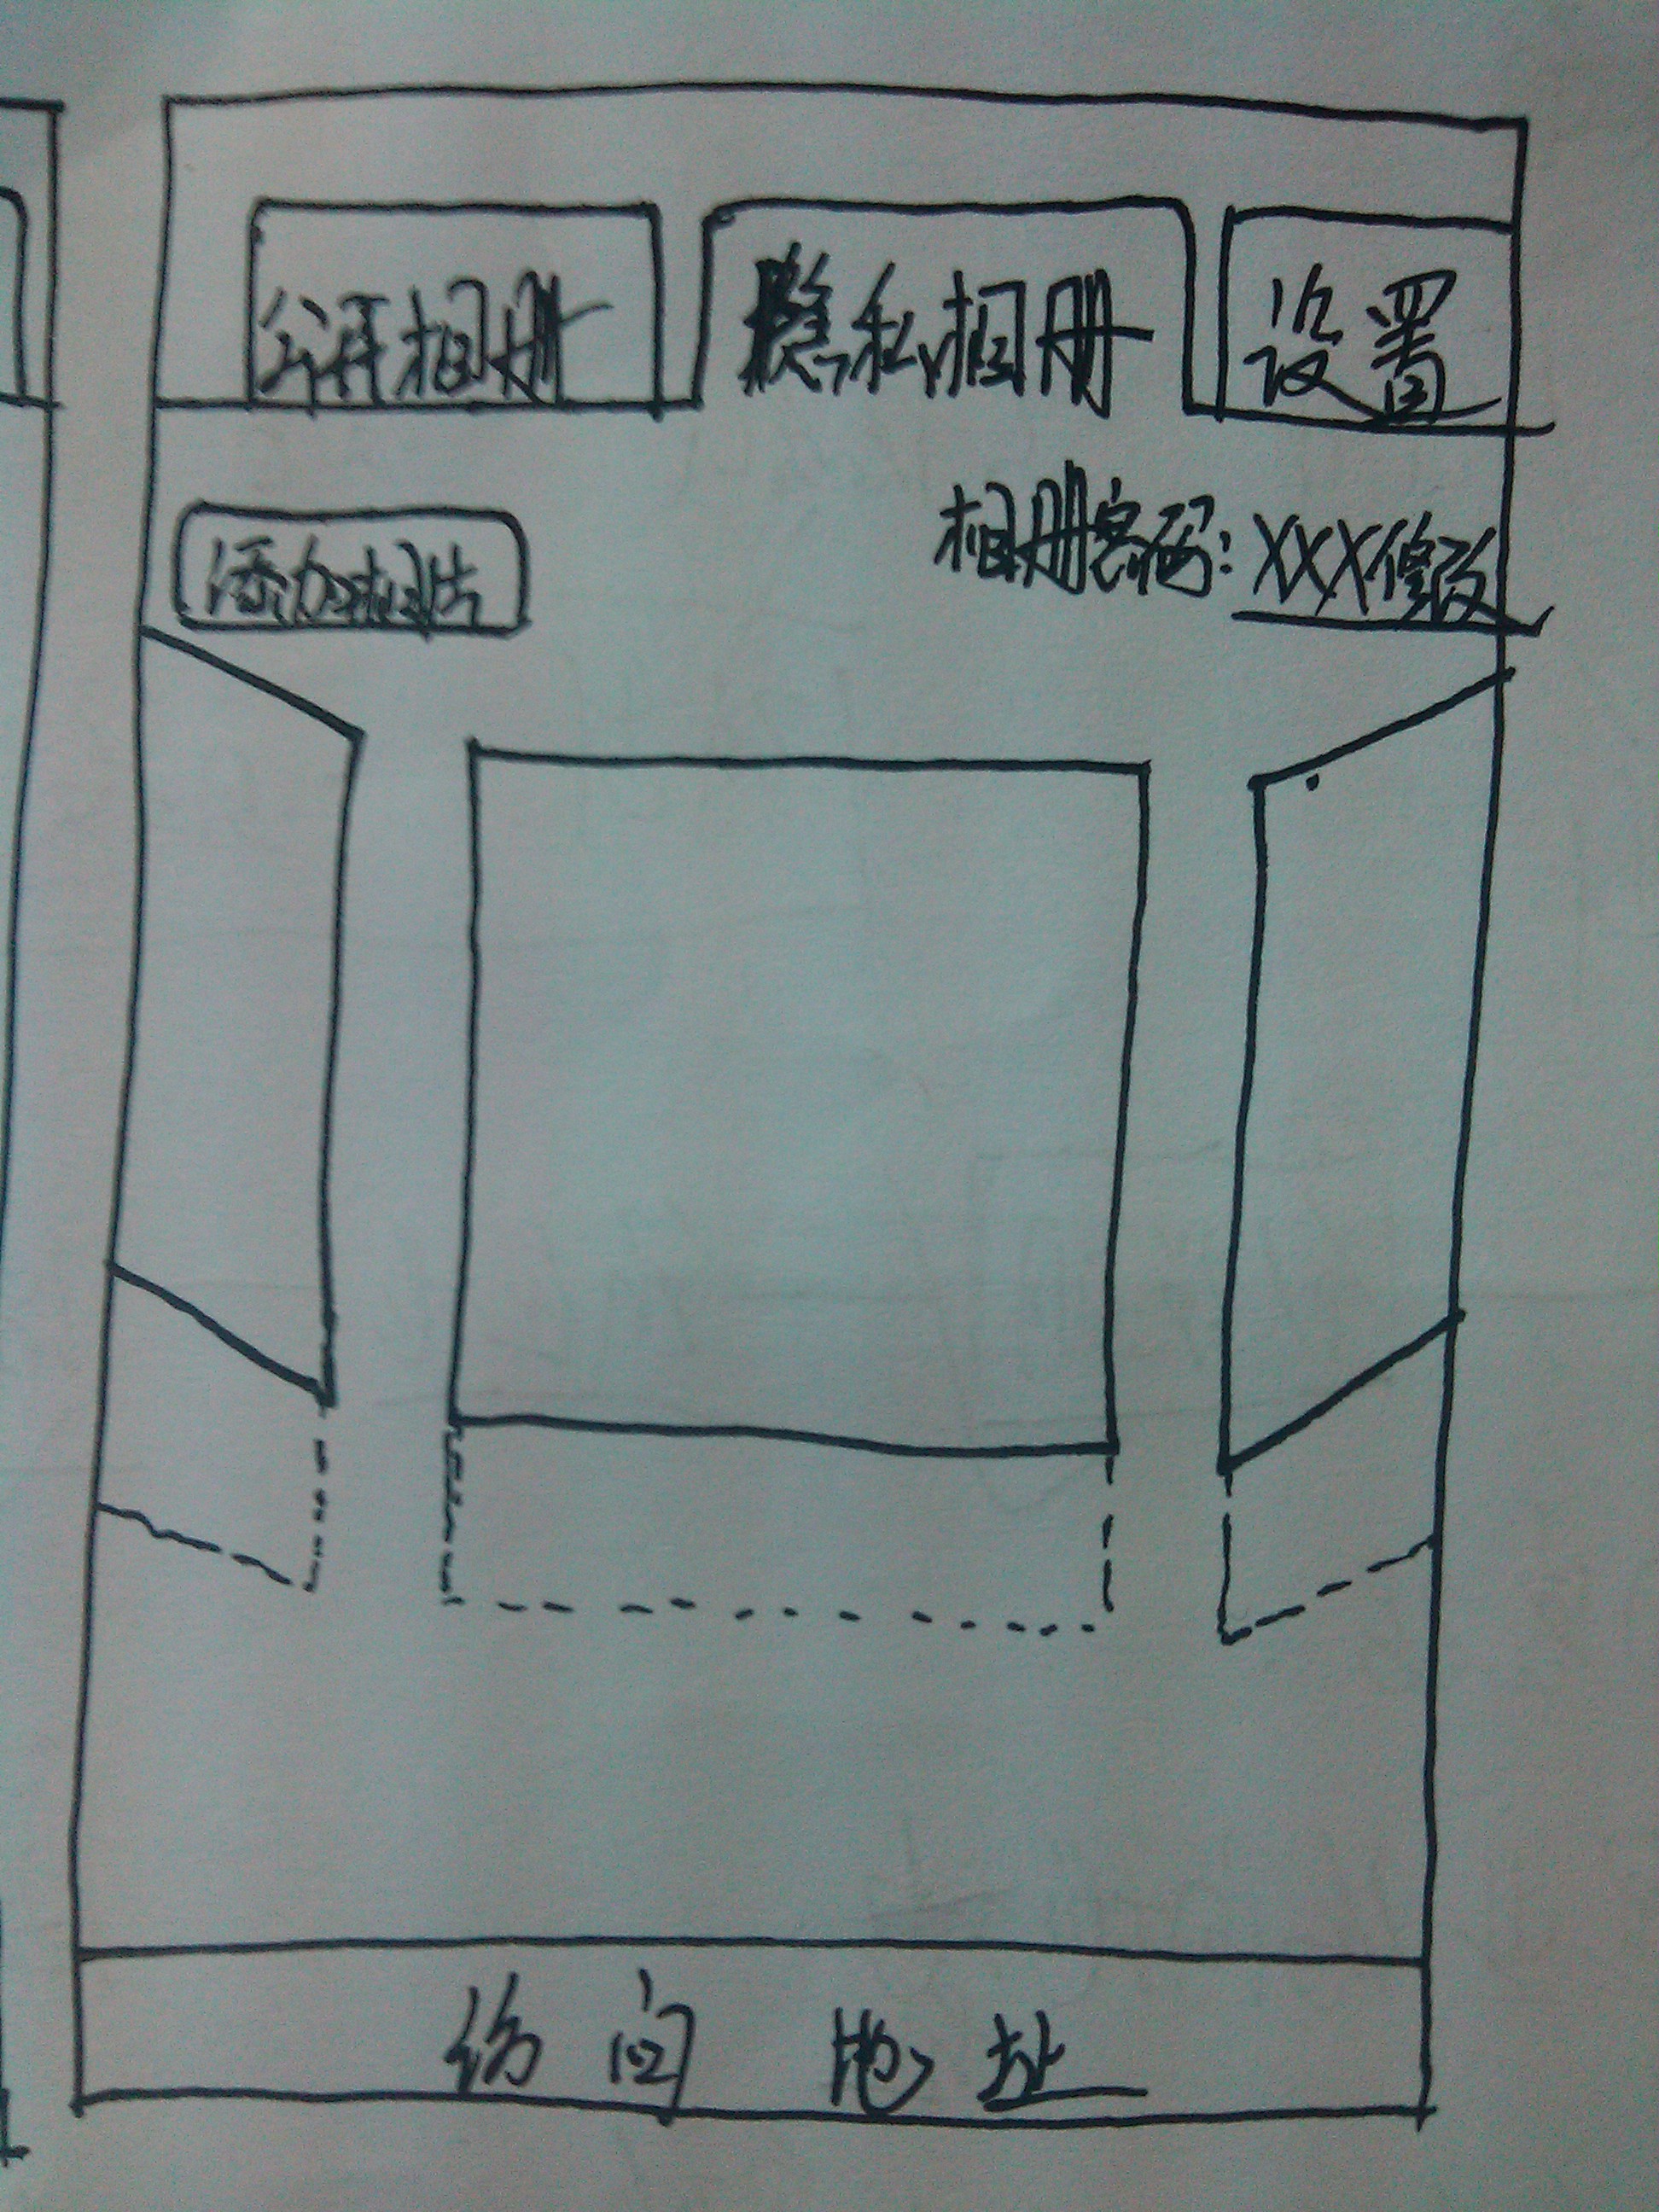 公开相册 隐私相册 设置
添加相片 相册密码:XXX修改
访问地址